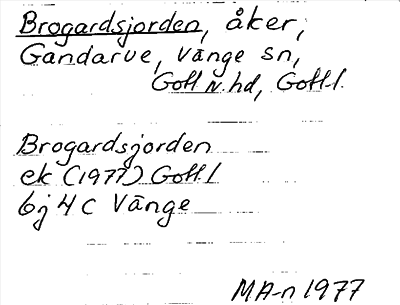 Brogardsjorden, åker,
Gandarve, Vänge sn,
Gotl N. hd, Gotl.l.
Brogardsjorden
ek (1977) Gotl. l
6j 4 c Vänge
MA-n 1977